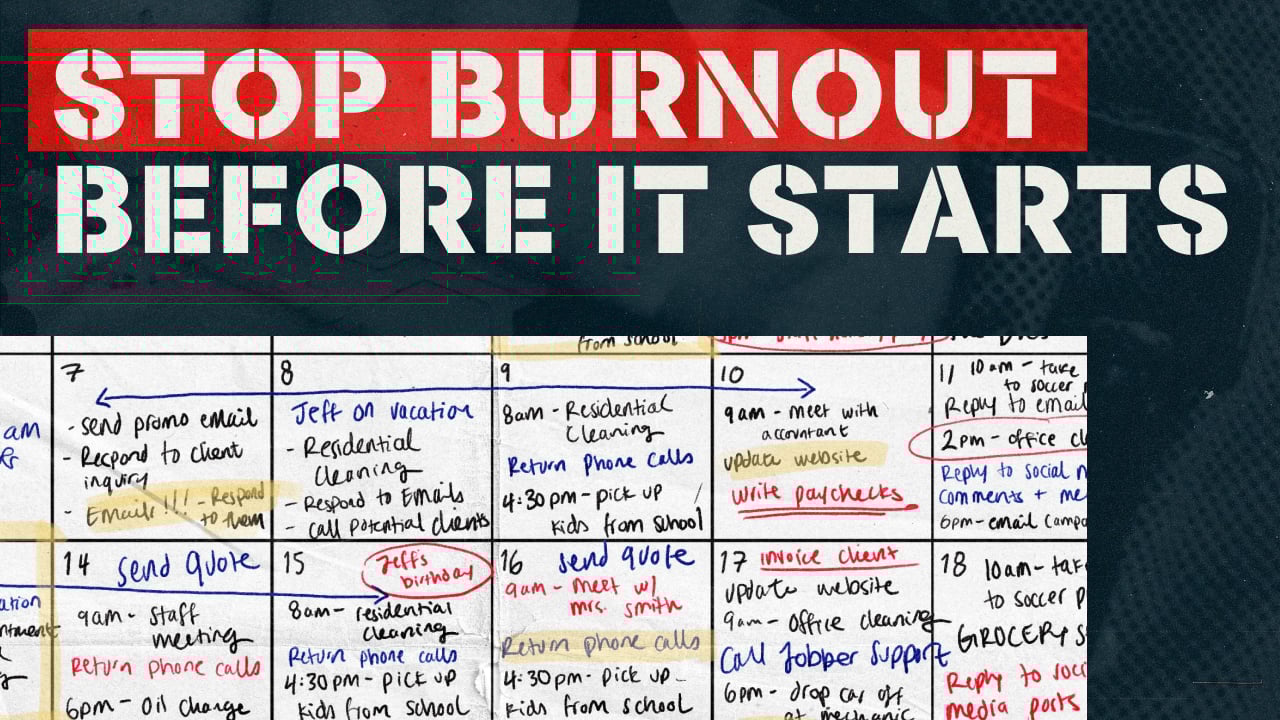 STOP BURNOUT
BEFORE IT STARTS
from school
7
- send promo email
- Respond to client
inquiry
- Emails!!! - Respond
to them
8
Jeff on vacation
- Residential
Cleaning
- Respond to Emails
- Call potential clients
9
8am - Residential
Cleaning
Return phone calls
4:30pm - pick up
kids from school
10
9am - meet with
accountant
update website
write paychecks
11 10am - take
to soccer
Reply to email
2pm - office cl
Reply to social m
comments + me
6pm - email campa
am
14 send quote
9am - staff
meeting
Return phone calls
6pm - oil change
15 Jeff's
birthday
8am - residential
cleaning
Return phone calls
4:30pm - pick up
kids from school
16 send quote
9am - meet w/
mrs. smith
Return phone calls
4:30pm - pick up
kids from school
17 invoice client
update website
9am - office cleaning
Call Jobber Support
6pm - drop car off
at mechanic
18 10am - tak
to soccer p
GROCERY S
Reply to soci
media posts